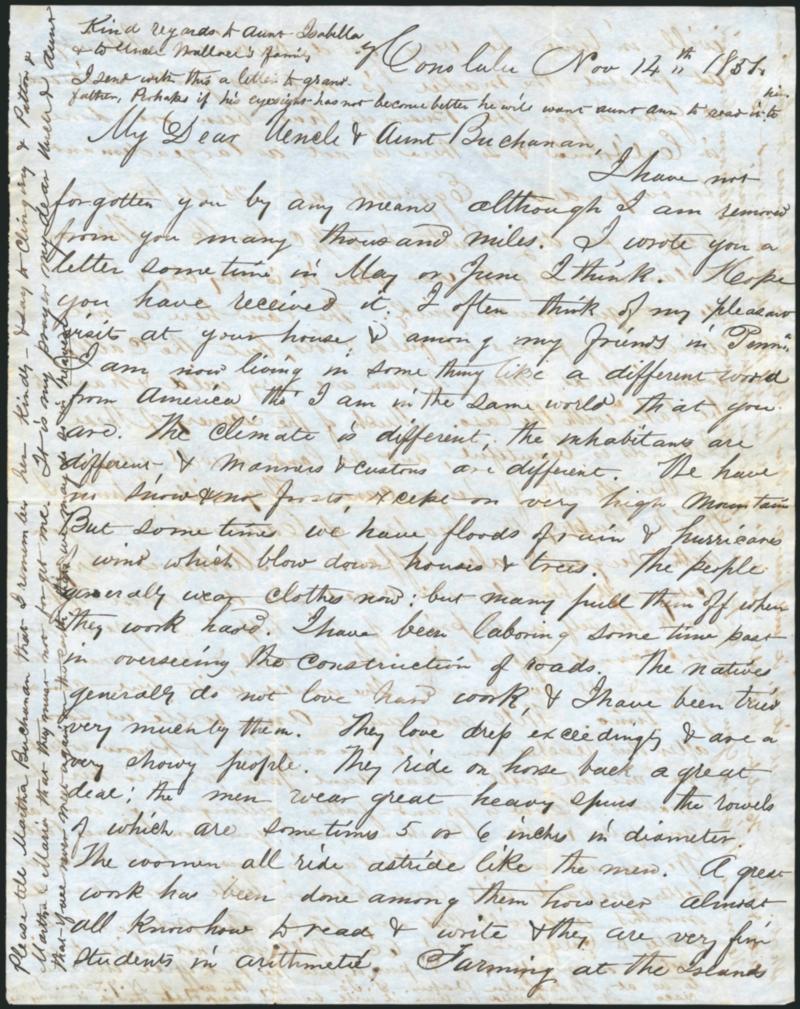 Kind regards to Aunt Isabella
& to Uncle Wallace's family
I send with this a letter to grand-
father, Perhaps if his eyesight has not become better he will want aunt ann to read it to him
Honolulu Nov 14th
My Dear Uncle & Aunt Buchanan,
I have not
forgotten you by any means although I am removed
from you many thousand miles. I wrote you a
letter some time in May or June I think. Hope
you have received it. I often think of my pleasant
visits at your house & among my friends in Penn.
I am now living in some thing like a different world
from America tho' I am in the same world that you
are. The climate is different, the inhabitants are
different, & manners & customs are different. We have
no snow & no frosts, except on very high mountains
But sometimes we have floods of rain & hurricanes
of wind which blow down houses & trees. The people
generally wear clothes now: but many pull them off when
they work hard. I have been laboring some time past
in overseeing the construction of roads. The natives
generally do not love hard work, & I have been tried
very much by them. They love dress exceedingly & are a
very showy people. They ride on horse back a great
deal; the men wear great heavy spurs the rowels
of which are sometimes 5 or 6 inches in diameter.
The women all ride astride like the men. A great
work has been done among them however almost
all know how to read & write & they are very fine
students in arithmetic. Farming at the Islands
Please tell Martha Buchanan that I remember her kindly - & say to & Patton &
Martha & Maria that they must not forget me. It is my prayer my dear Uncle & Aunt
that if we never meet again on the earth we may in heaven